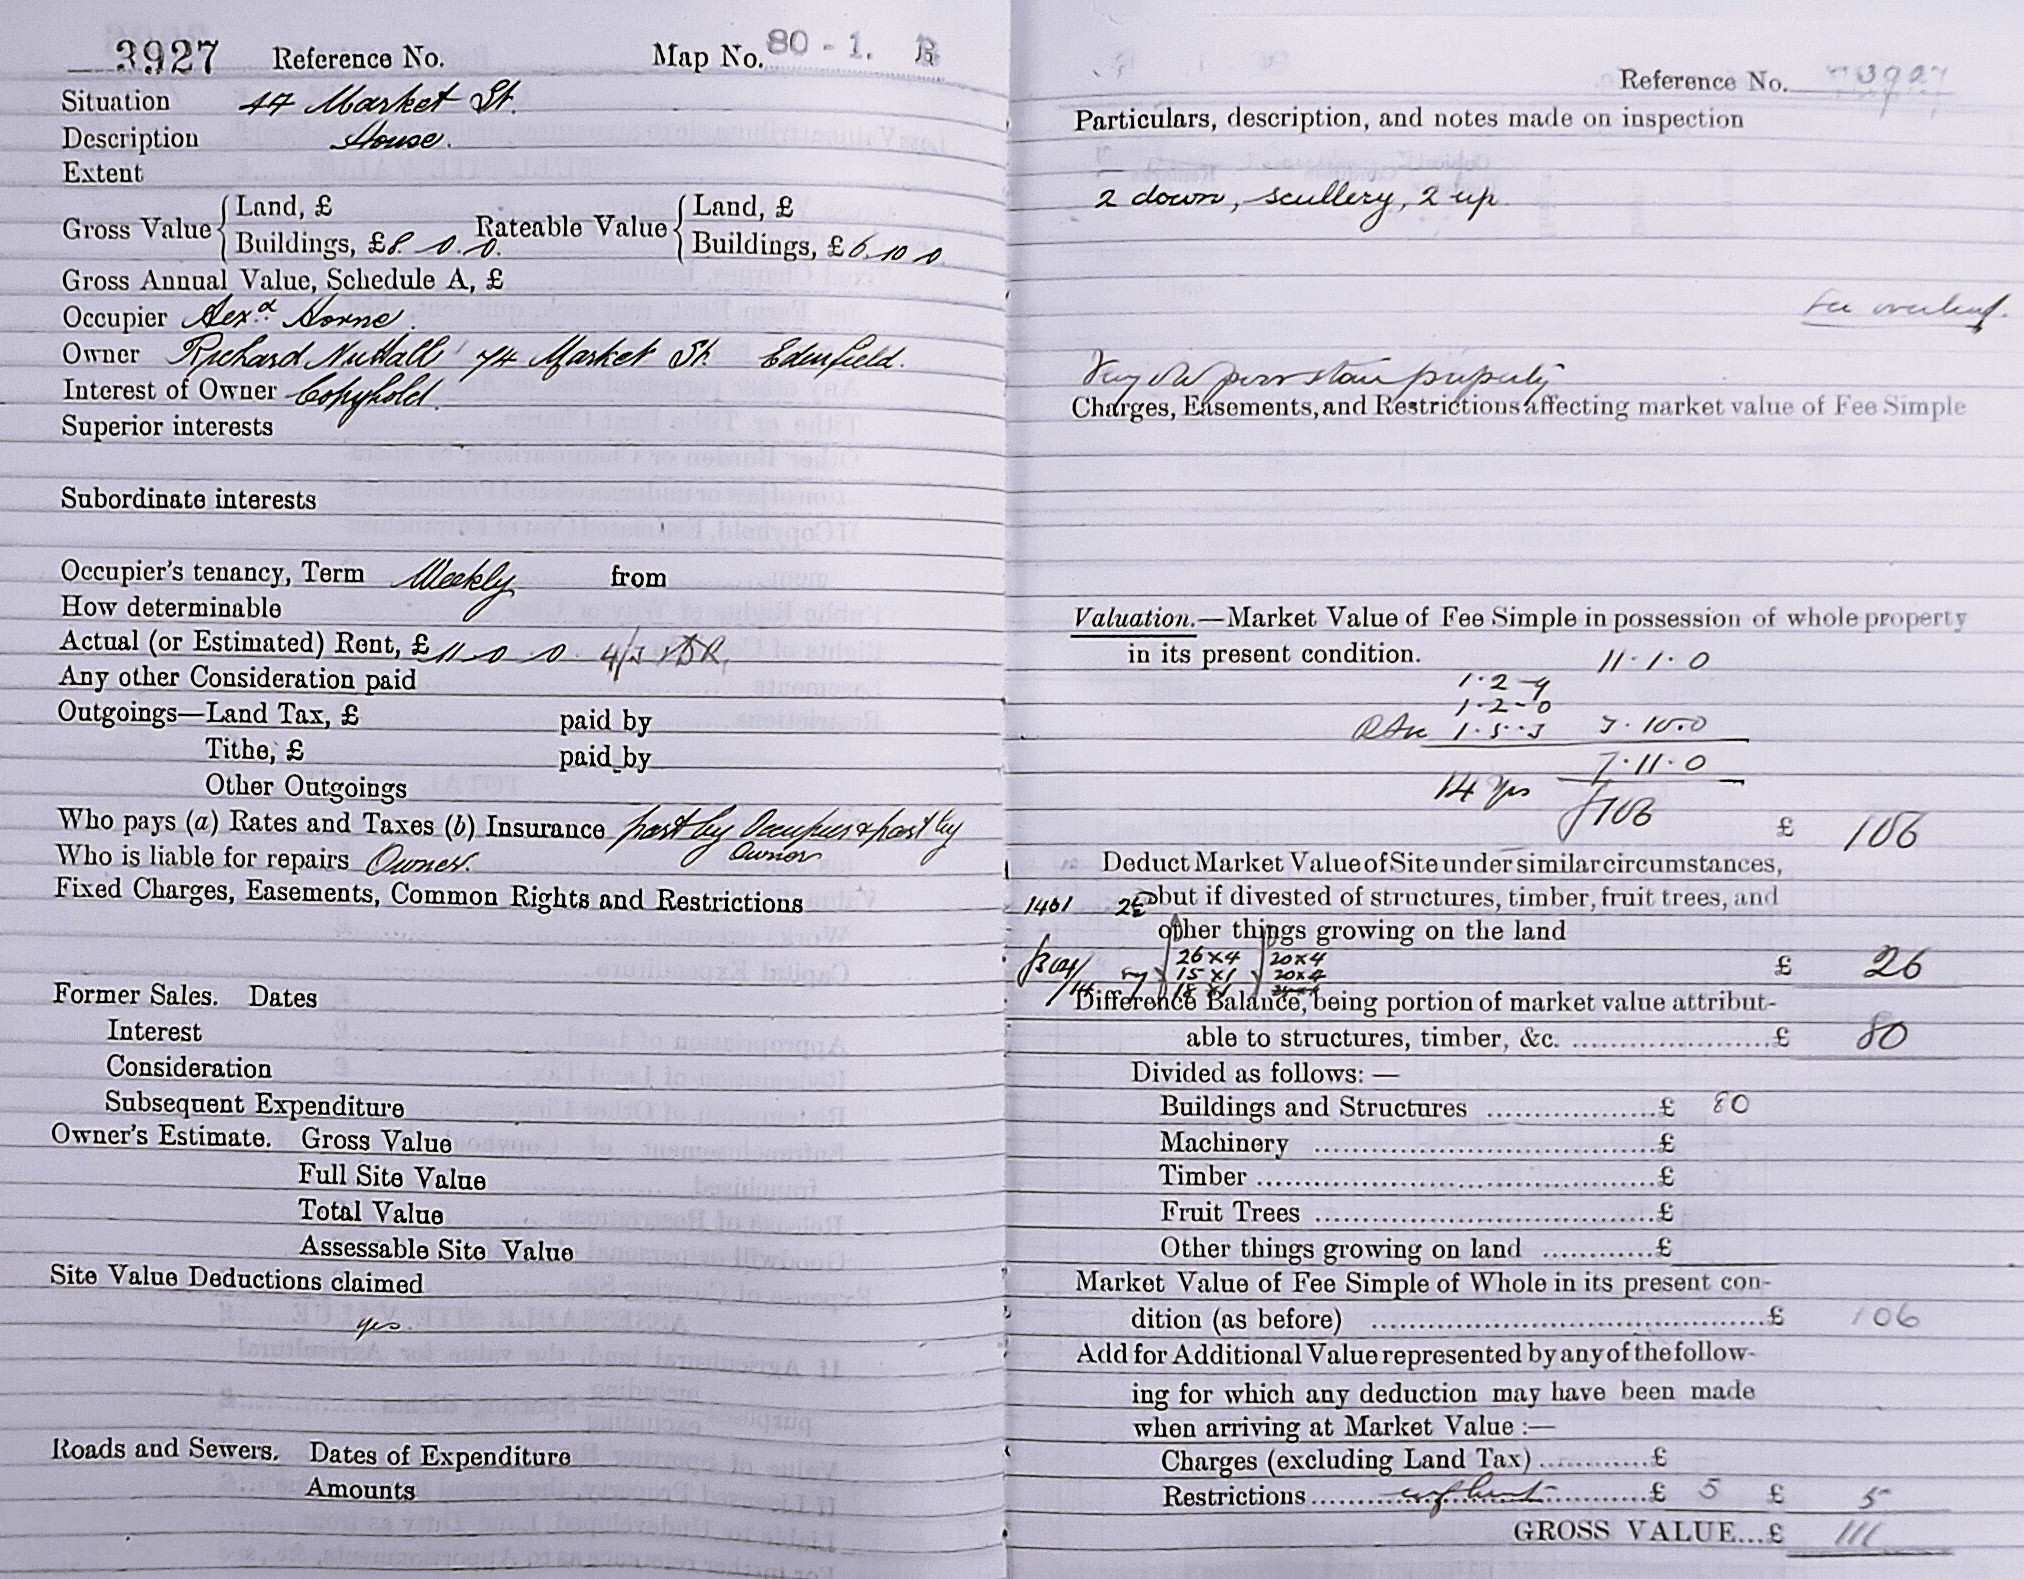 3927 Reference No. Map No. 80 - 1. B
Situation 44 Market St.
Description House.
Extent
Gross Value { Land, £
Buildings, £8. 0. 0.
Rateable Value { Land, £
Buildings, £6. 10 0
Gross Annual Value, Schedule A, £
Occupier Alexr. Horne.
Owner Richard Nuttall 74 Market St. Edenfield.
Interest of Owner Copyhold.
Superior interests
Subordinate interests
Occupier's tenancy, Term Weekly from
How determinable
Actual (or Estimated) Rent, £ 11. 0 0. 4/3
Any other Consideration paid
Outgoings—Land Tax, £ paid by
Tithe, £ paid by
Other Outgoings
Who pays (a) Rates and Taxes (b) Insurance part by Occupier & part by
Owner
Who is liable for repairs Owner.
Fixed Charges, Easements, Common Rights and Restrictions
Former Sales. Dates
Interest
Consideration
Subsequent Expenditure
Owner's Estimate. Gross Value
Full Site Value
Total Value
Assessable Site Value
Site Value Deductions claimed
yes.
Roads and Sewers. Dates of Expenditure
Amounts
Reference No. 3927
Particulars, description, and notes made on inspection
2 down, scullery, 2 up
See overleaf.
Very old poor stone property
Charges, Easements, and Restrictions affecting market value of Fee Simple
Valuation.—Market Value of Fee Simple in possession of whole property
in its present condition. 11 . 1 . 0
1 . 2 - 9
1 - 2 - 0
1 . 5 . 3 3 . 10 . 0
7 . 11 . 0
14 yrs £106
£ 106
Deduct Market Value of Site under similar circumstances,
1401 but if divested of structures, timber, fruit trees, and
other things growing on the land
26 x 4 20 x 4
15 x 1 20 x 4
£ 26
Difference Balance, being portion of market value attribut-
able to structures, timber, &c. £ 80
Divided as follows: —
Buildings and Structures £ 80
Machinery £
Timber £
Fruit Trees £
Other things growing on land £
Market Value of Fee Simple of Whole in its present con-
dition (as before) £ 106
Add for Additional Value represented by any of the follow-
ing for which any deduction may have been made
when arriving at Market Value :—
Charges (excluding Land Tax) £
Restrictions £ 5 £ 5
GROSS VALUE...£ 111